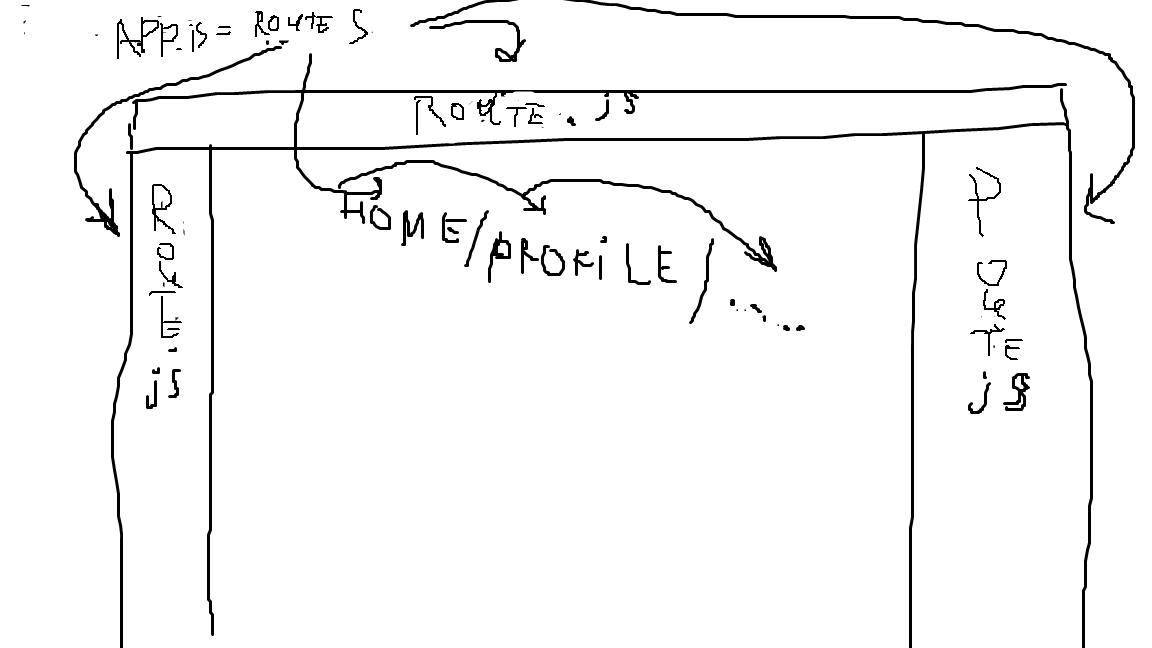 APP.js = ROUTES
ROUTE.js
ROUTE.js
HOME/PROFILE/.....
ROUTE js